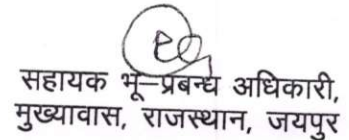 सहायक भू–प्रबन्ध अधिकारी,
मुख्यावास, राजस्थान, जयपुर